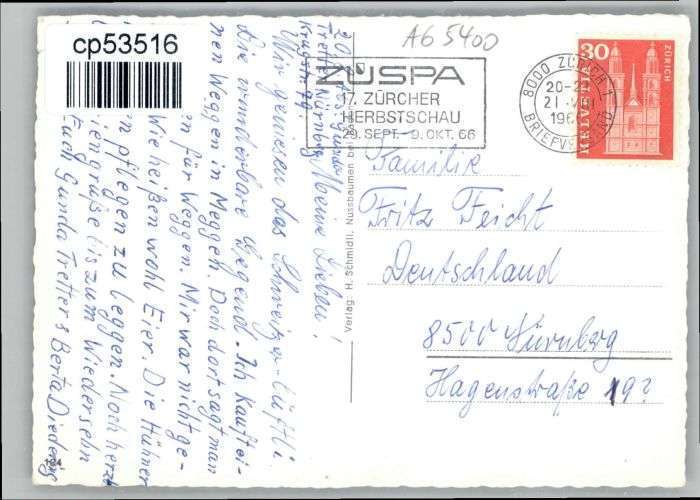 cp53516
A6 5400
ZÜSPA
17. ZÜRCHER
HERBSTSCHAU
29. SEPT. - 9. OKT. 66
8000 ZÜRICH 1
20-
21.
196
BRIEFVERSAND
30
HELVETIA
ZÜRICH
Familie
Fritz Feicht
Deutschland
8500 Nürnberg
Hagenstraße 19?
Verlag: H. Schmidli, Nussbaumen bei
Tretter, Nürnberg
Meine Lieben!
Wir genießen das Schweizer-Lüftli.
die wunderbare Gegend. Ich kauf ei-
nen Weggen in Meggen. Doch dort sagt man
en für Weggen. Mir war nicht ge-
Wie heißen wohl Eier. Die Hühner
n pflegen zu leggen. Noch herzl
iengrüße bis zum Wiedersehn
Euch Gunda Tretter & Berta